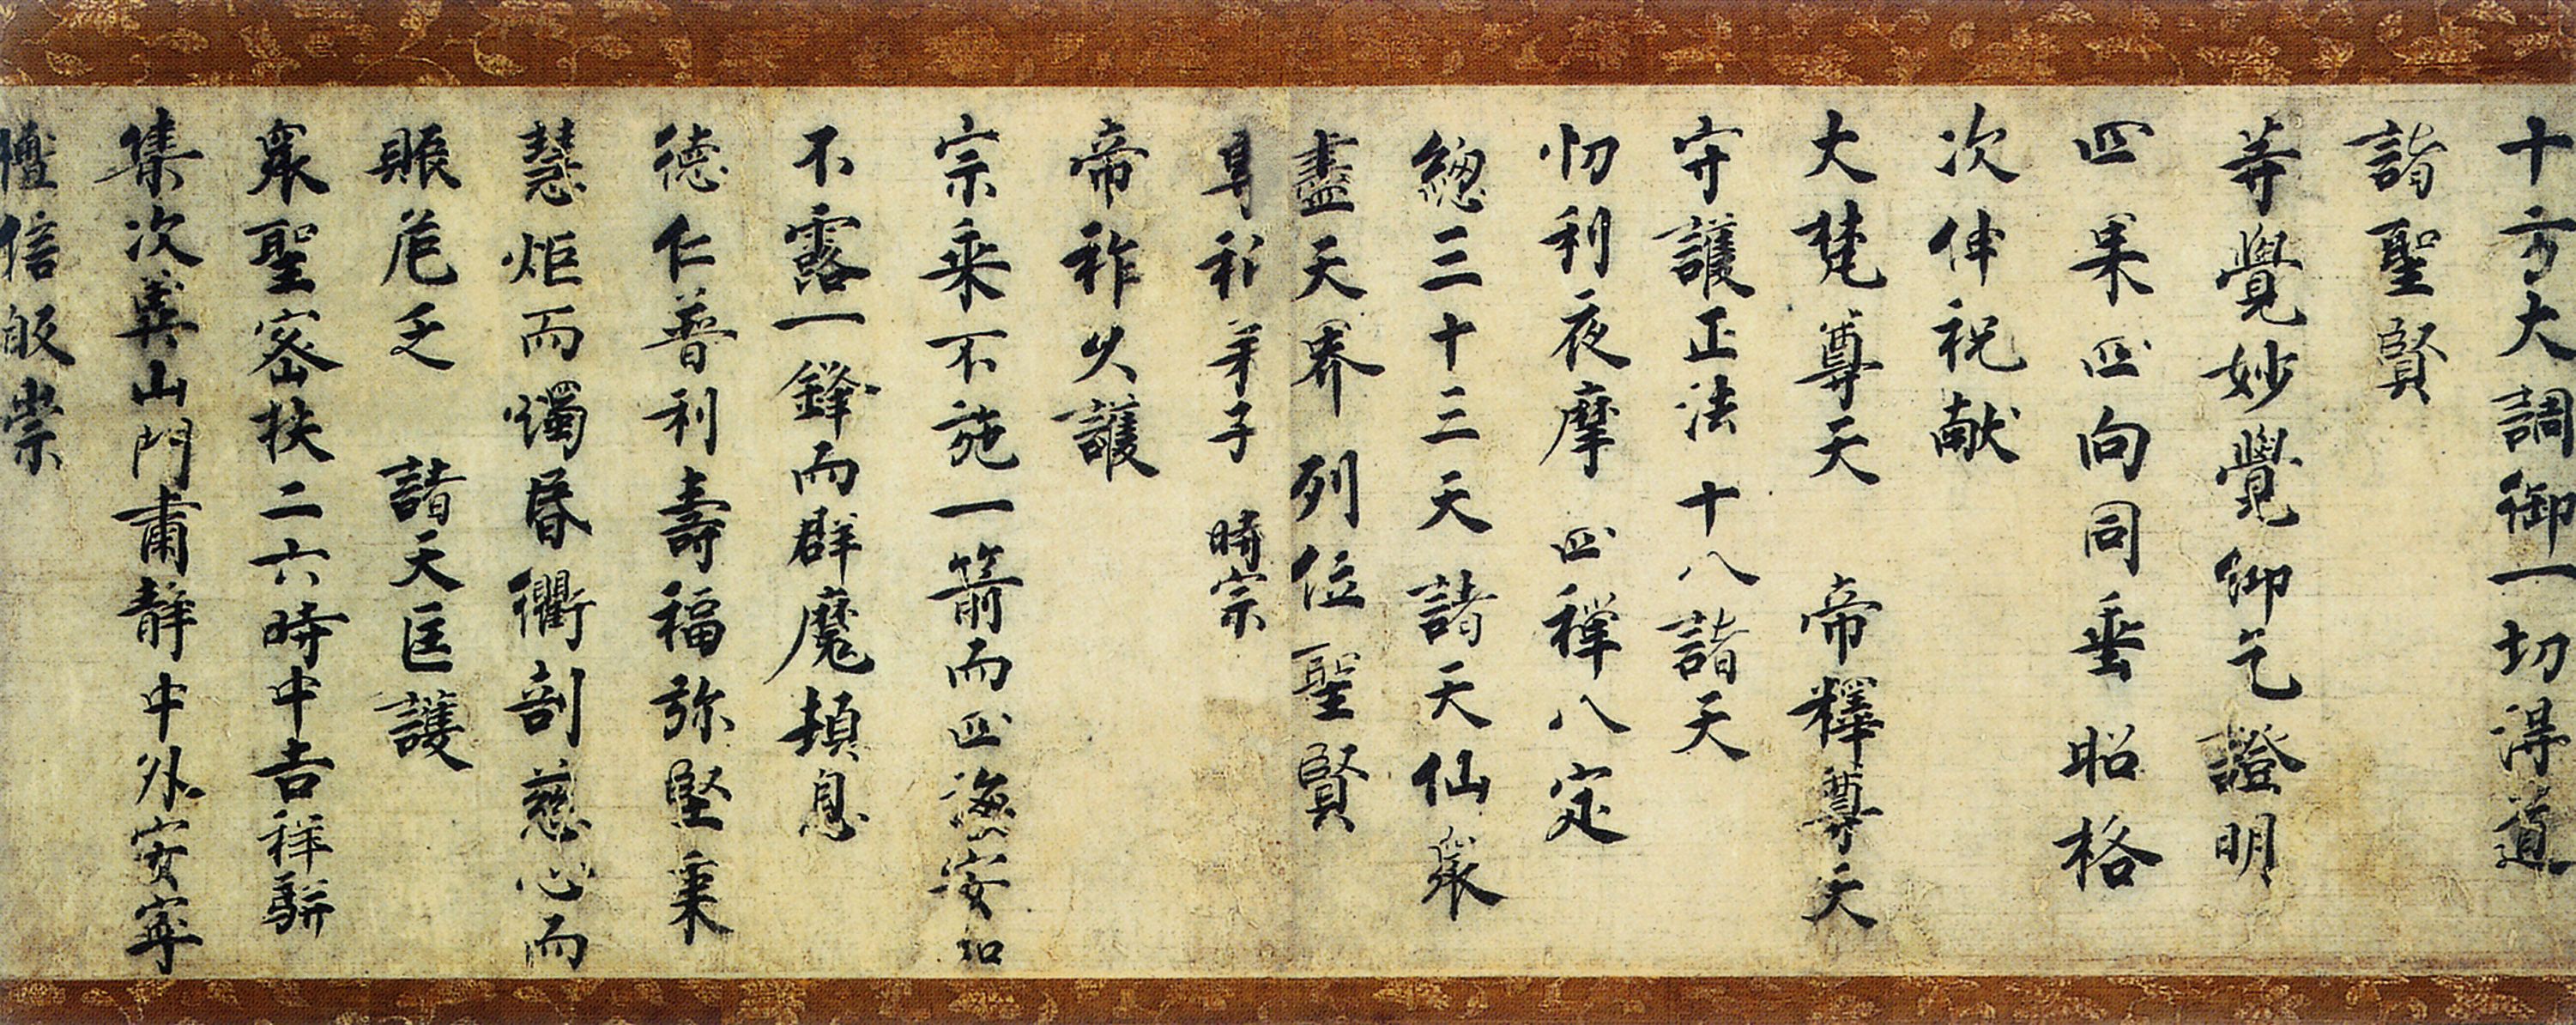 十方大調御一切得道
諸聖賢
等覺妙覺仰乞證明
四果四向同垂昭格
次伸祝献
大梵尊天 帝釋尊天
守護正法十八諸天
忉利夜摩四禅八定
總三十三天諸天仙衆
盡天界列位聖賢
弟子 時宗
帝祚久護
宗乘不施一箭而四海安和
不露一鋒而群魔頓息
德仁普利壽福弥堅秉
慧炬而燭昏衢剖慈心而
賑危乏 諸天匡護
衆聖密扶二六時中吉祥騈
集次冀山門肅静中外安寧
檀信皈崇